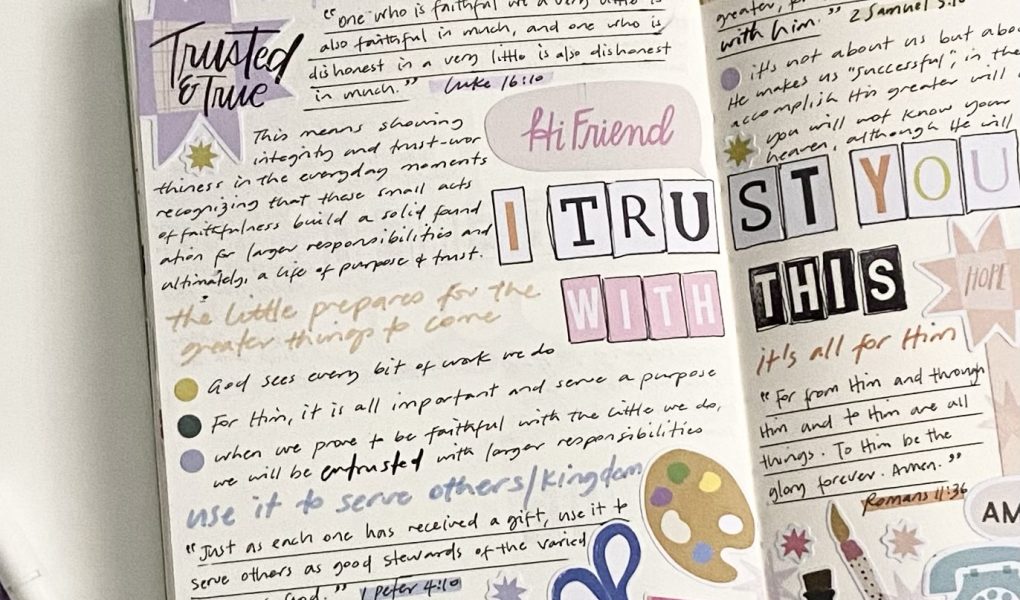 Trusted
& True
"one who is faithful in a very little is
also faithful in much, and one who is
dishonest in a very little is also dishonest
in much." Luke 16:10
This means showing
integrity and trust-wor
thiness in the everyday moments
recognizing that these small acts
of faithfulness build a solid found
ation for larger responsibilities and
ultimately, a life of purpose & trust.
Hi Friend
I TRUST YOU
WITH THIS
the little prepares for the
greater things to come
God sees every bit of work we do
For Him, it is all important and serve a purpose
when we prove to be faithful with the little we do,
we will be entrusted with larger responsibilities
use it to serve others/kingdom
"Just as each one has received a gift, use it to
serve others as good stewards of the varied
God." 1 Peter 4:10
greater,
with him." 2 Samuel 5:10
it's not about us but
He makes us "successful", in the
accomplish His greater will
you will not know your
heaven, although He will
HOPE
it's all for Him
"For from Him and through
Him and to Him are all
things. To Him be the
glory forever. Amen."
Romans 11:36
AM